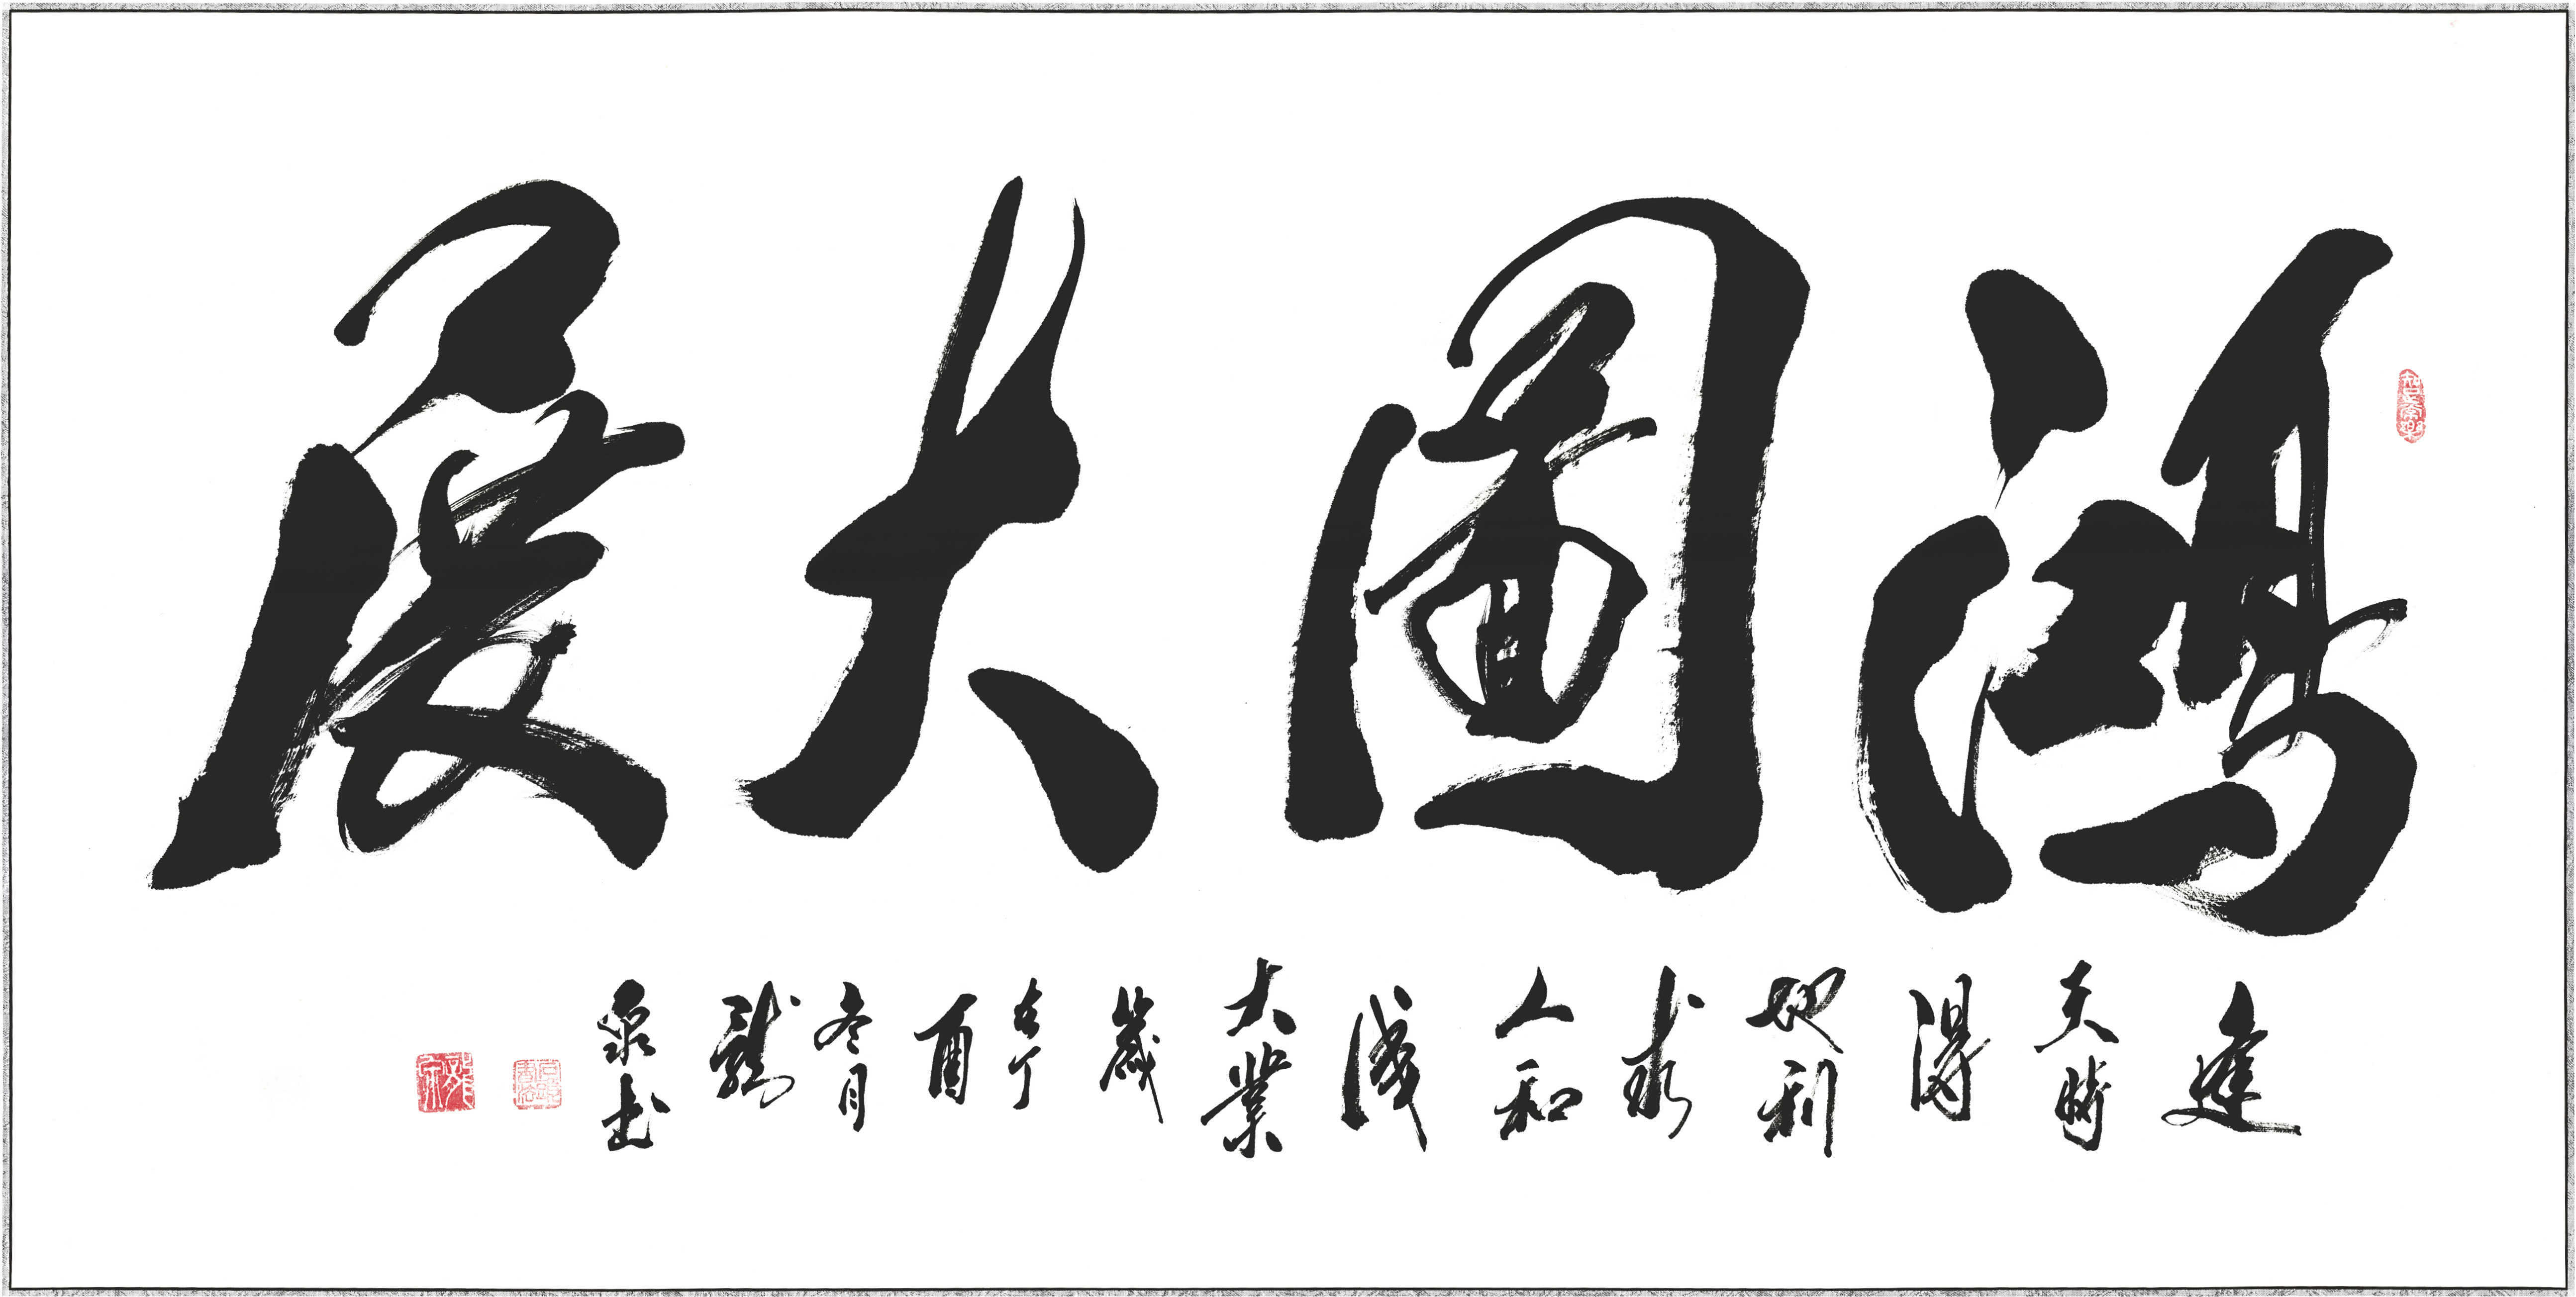 鴻圖大展
逢天時得地利求人和成大業歲在丁酉冬月龍泉書
知足常樂